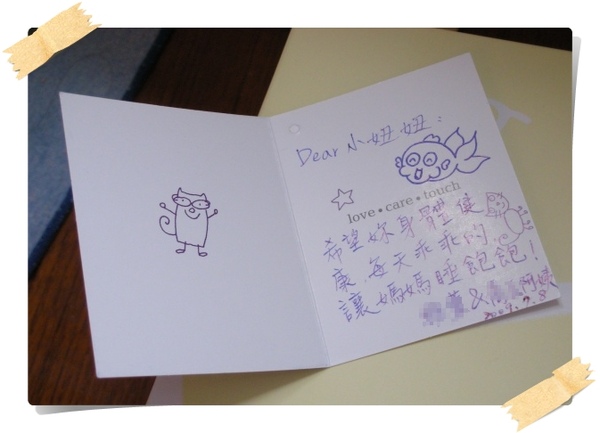 Dear 小妞妞：
love•care•touch
希望妳身體健
康.每天乖乖的
讓媽媽睡飽飽!
&阿姨
2009.7.8